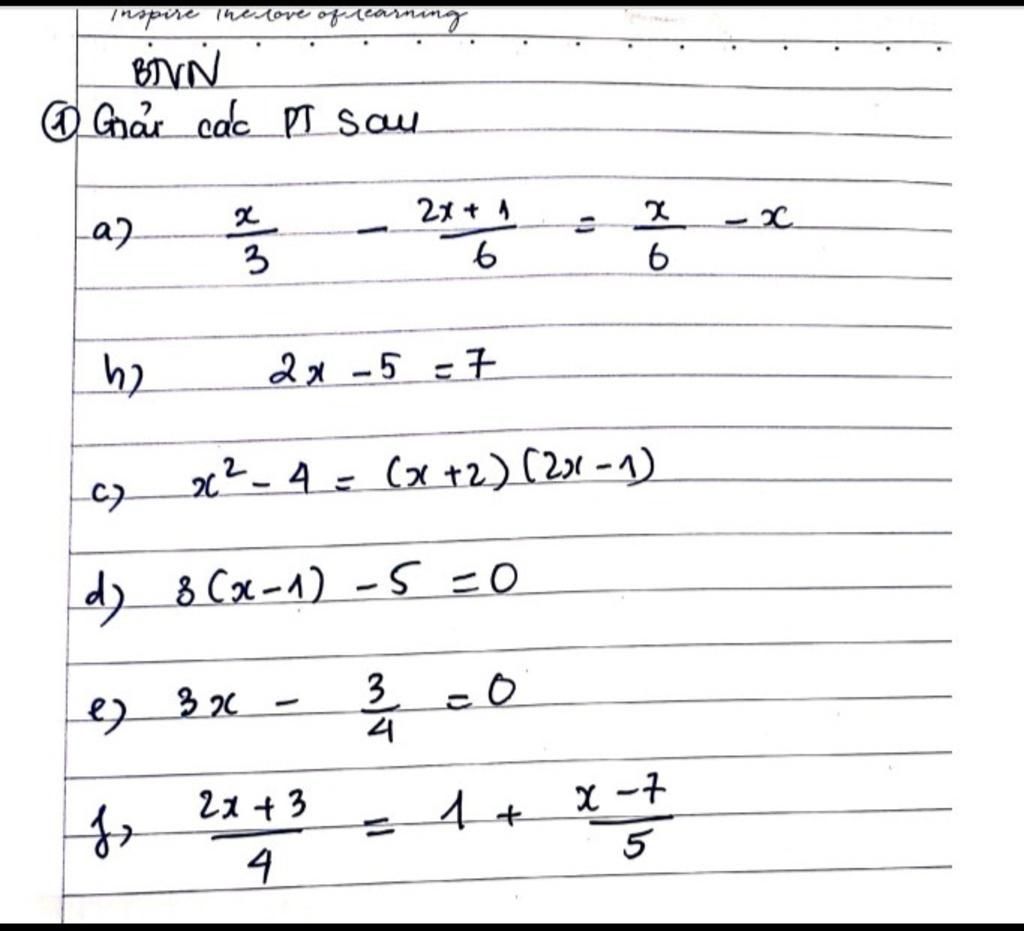 Inspire The love of learning
BTVN
① Giải các PT sau
a) x/3 - (2x + 1)/6 = x/6 - x
b) 2x - 5 = 7
c) x² - 4 = (x + 2)(2x - 1)
d) 8(x - 1) - 5 = 0
e) 3x - 3/4 = 0
f) (2x + 3)/4 = 1 + (x - 7)/5